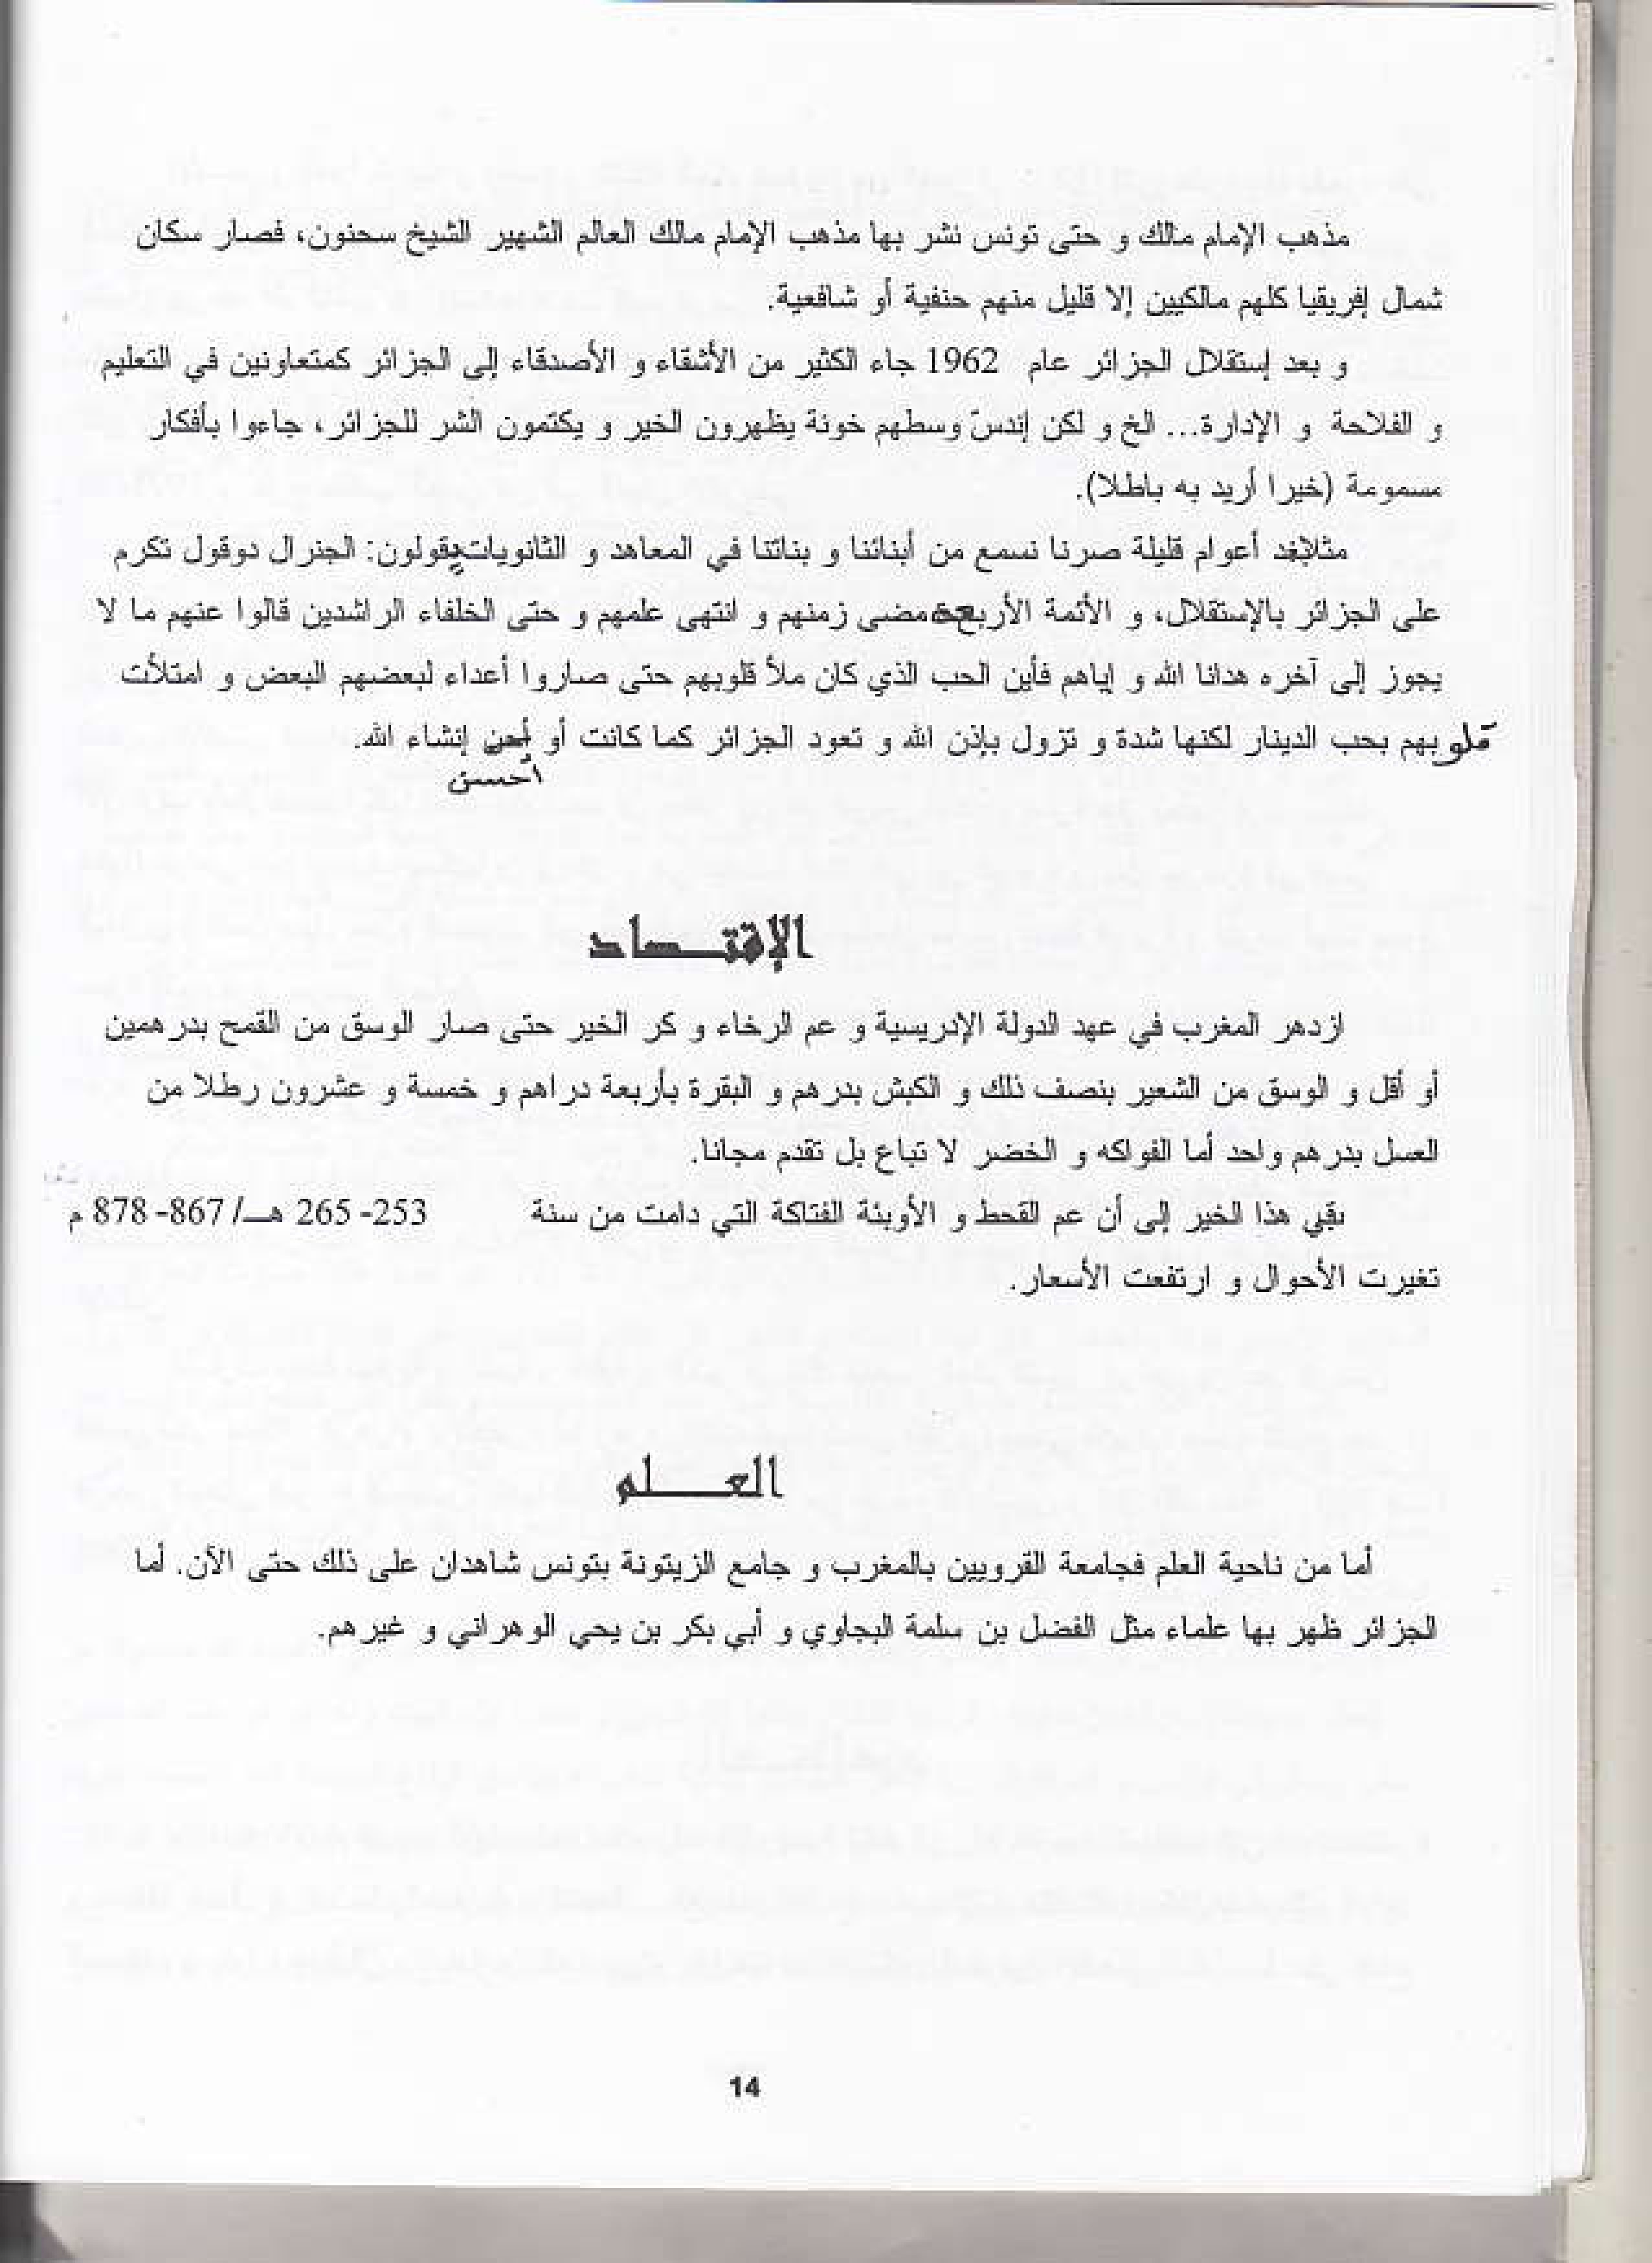 مذهب الإمام مالك و حتى تونس نشر بها مذهب الإمام مالك العالم الشهير الشيخ سحنون، فصار سكان
شمال إفريقيا كلهم مالكيين إلا قليل منهم حنفية أو شافعية.
و بعد إستقلال الجزائر عام 1962 جاء الكثير من الأشقاء و الأصدقاء إلى الجزائر كمتعاونين في التعليم
و الفلاحة و الإدارة... الخ و لكن إندسّ وسطهم خونة يظهرون الخير و يكتمون الشر للجزائر، جاءوا بأفكار
مسمومة (خيرا أريد به باطلا).
مثلا أعوام قليلة صرنا نسمع من أبنائنا و بناتنا في المعاهد و الثانويات يقولون: الجنرال دوقول تكرم
على الجزائر بالإستقلال، و الأئمة الأربعة مضى زمنهم و انتهى علمهم و حتى الخلفاء الراشدين قالوا عنهم ما لا
يجوز إلى آخره هدانا الله و إياهم فأين الحب الذي كان ملأ قلوبهم حتى صاروا أعداء لبعضهم البعض و امتلأت
قلوبهم بحب الدينار لكنها شدة و تزول بإذن الله و تعود الجزائر كما كانت أو أحن إنشاء الله.
أحسن
الإقتـــصاد
ازدهر المغرب في عهد الدولة الإدريسية و عم الرخاء و كر الخير حتى صار الوسق من القمح بدرهمين
أو أقل و الوسق من الشعير بنصف ذلك و الكبش بدرهم و البقرة بأربعة دراهم و خمسة و عشرون رطلا من
العسل بدرهم واحد أما الفواكه و الخضر لا تباع بل تقدم مجانا.
بقي هذا الخير إلى أن عم القحط و الأوبئة الفتاكة التي دامت من سنة 253- 265 هـ/ 867- 878 م
تغيرت الأحوال و ارتفعت الأسعار.
العـــلم
أما من ناحية العلم فجامعة القرويين بالمغرب و جامع الزيتونة بتونس شاهدان على ذلك حتى الآن. أما
الجزائر ظهر بها علماء مثل الفضل بن سلمة البجاوي و أبي بكر بن يحي الوهراني و غيرهم.
14